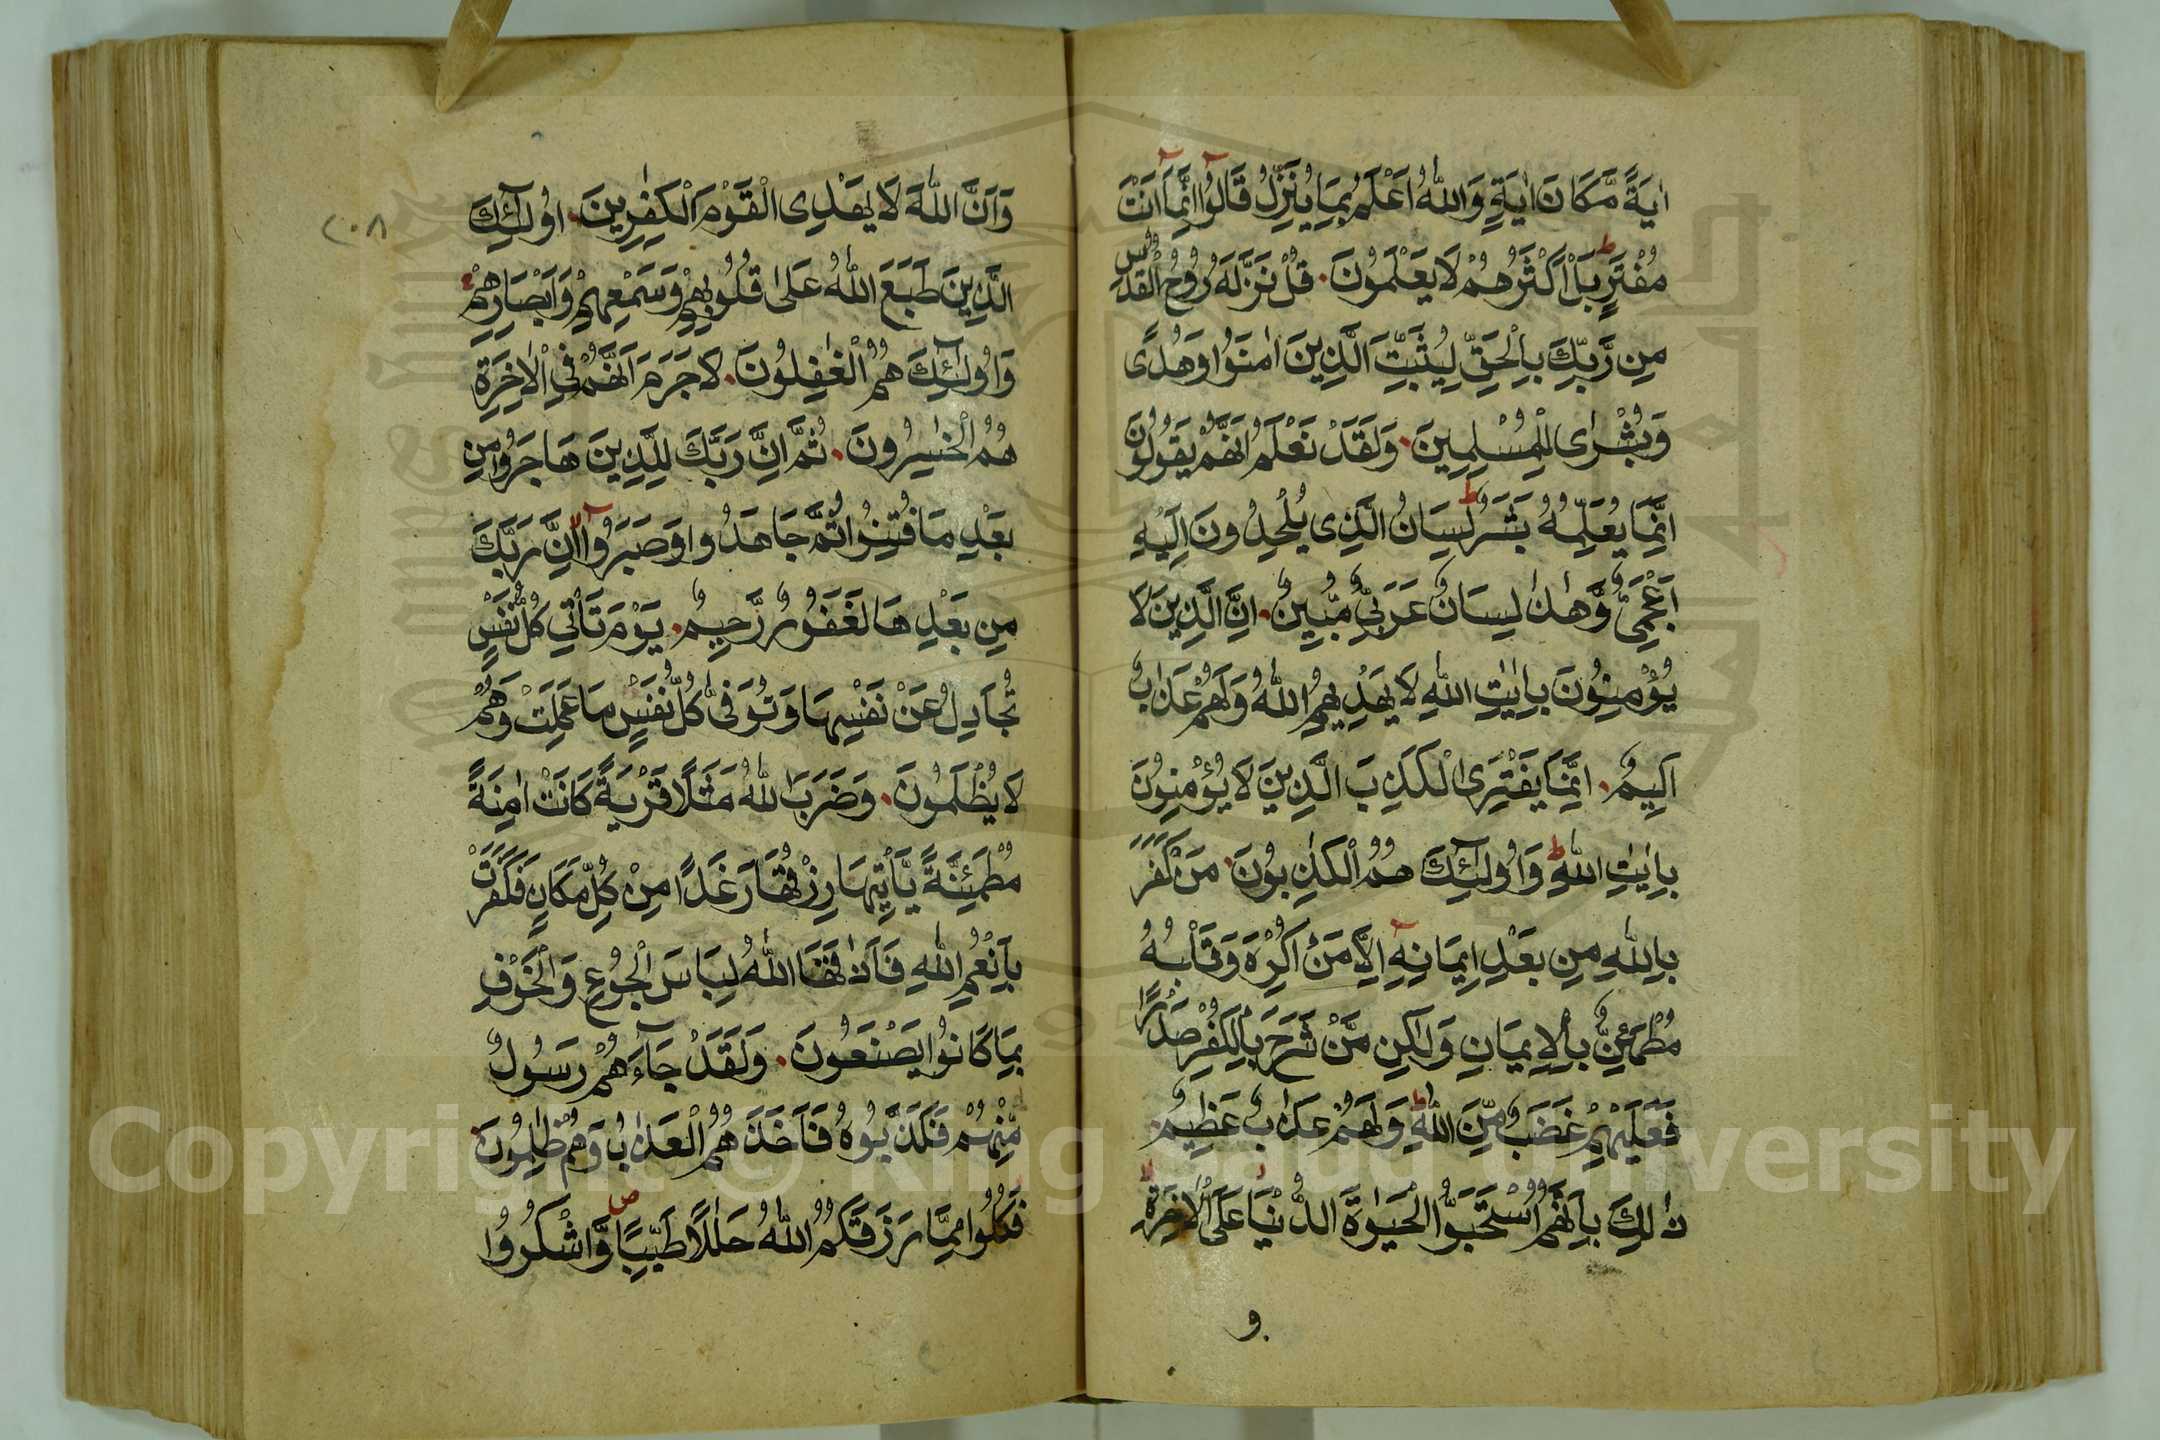 اٰيَةً مَّكَانَ اٰيَةٍ وَاللّٰهُ اَعْلَمُ بِمَا يُنَزِّلُ قَالُوْٓا اِنَّمَآ اَنْتَ
مُفْتَرٍ ط بَلْ اَكْثَرُهُمْ لَا يَعْلَمُوْنَ . قُلْ نَزَّلَهُ رُوْحُ الْقُدُسِ
مِنْ رَّبِّكَ بِالْحَقِّ لِيُثَبِّتَ الَّذِيْنَ اٰمَنُوْا وَهُدًى
وَبُشْرٰى لِلْمُسْلِمِيْنَ . وَلَقَدْ نَعْلَمُ اَنَّهُمْ يَقُوْلُوْنَ
اِنَّمَا يُعَلِّمُهُ بَشَرٌ ط لِسَانُ الَّذِيْ يُلْحِدُوْنَ اِلَيْهِ
اَعْجَمِىٌّ وَّهٰذَا لِسَانٌ عَرَبِىٌّ مُّبِيْنٌ . اِنَّ الَّذِيْنَ لَا
يُؤْمِنُوْنَ بِاٰيٰتِ اللّٰهِ لَا يَهْدِيْهِمُ اللّٰهُ وَلَهُمْ عَذَابٌ
اَلِيْمٌ . اِنَّمَا يَفْتَرِى الْكَذِبَ الَّذِيْنَ لَا يُؤْمِنُوْنَ
بِاٰيٰتِ اللّٰهِ ط وَاُولٰٓئِكَ هُمُ الْكٰذِبُوْنَ . مَنْ كَفَرَ
بِاللّٰهِ مِنْ بَعْدِ اِيْمَانِهٖٓ اِلَّا مَنْ اُكْرِهَ وَقَلْبُهُ
مُطْمَئِنٌّ بِالْاِيْمَانِ وَلٰكِنْ مَّنْ شَرَحَ بِالْكُفْرِ صَدْرًا
فَعَلَيْهِمْ غَضَبٌ مِّنَ اللّٰهِ ط وَلَهُمْ عَذَابٌ عَظِيْمٌ
ذٰلِكَ بِاَنَّهُمُ اسْتَحَبُّوا الْحَيٰوةَ الدُّنْيَا عَلَى الْاٰخِرَةِ لا
و
٢٠٨
وَاَنَّ اللّٰهَ لَا يَهْدِى الْقَوْمَ الْكٰفِرِيْنَ . اُولٰٓئِكَ
الَّذِيْنَ طَبَعَ اللّٰهُ عَلٰى قُلُوْبِهِمْ وَسَمْعِهِمْ وَاَبْصَارِهِمْ
وَاُولٰٓئِكَ هُمُ الْغٰفِلُوْنَ . لَا جَرَمَ اَنَّهُمْ فِى الْاٰخِرَةِ
هُمُ الْخٰسِرُوْنَ . ثُمَّ اِنَّ رَبَّكَ لِلَّذِيْنَ هَاجَرُوْا مِنْ
بَعْدِ مَا فُتِنُوْا ثُمَّ جَاهَدُوْا وَصَبَرُوْٓا اِنَّ رَبَّكَ
مِنْ بَعْدِهَا لَغَفُوْرٌ رَّحِيْمٌ . يَوْمَ تَأْتِيْ كُلُّ نَفْسٍ
تُجَادِلُ عَنْ نَفْسِهَا وَتُوَفّٰى كُلُّ نَفْسٍ مَا عَمِلَتْ وَهُمْ
لَا يُظْلَمُوْنَ . وَضَرَبَ اللّٰهُ مَثَلًا قَرْيَةً كَانَتْ اٰمِنَةً
مُطْمَئِنَّةً يَّأْتِيْهَا رِزْقُهَا رَغَدًا مِنْ كُلِّ مَكَانٍ فَكَفَرَتْ
بِاَنْعُمِ اللّٰهِ فَاَذَاقَهَا اللّٰهُ لِبَاسَ الْجُوْعِ وَالْخَوْفِ
بِمَا كَانُوْا يَصْنَعُوْنَ . وَلَقَدْ جَآءَهُمْ رَسُوْلٌ
مِّنْهُمْ فَكَذَّبُوْهُ فَاَخَذَهُمُ الْعَذَابُ وَهُمْ ظٰلِمُوْنَ .
فَكُلُوْا مِمَّا رَزَقَكُمُ اللّٰهُ حَلٰلًا طَيِّبًا ص وَّاشْكُرُوْا
Copyright © King Saud University